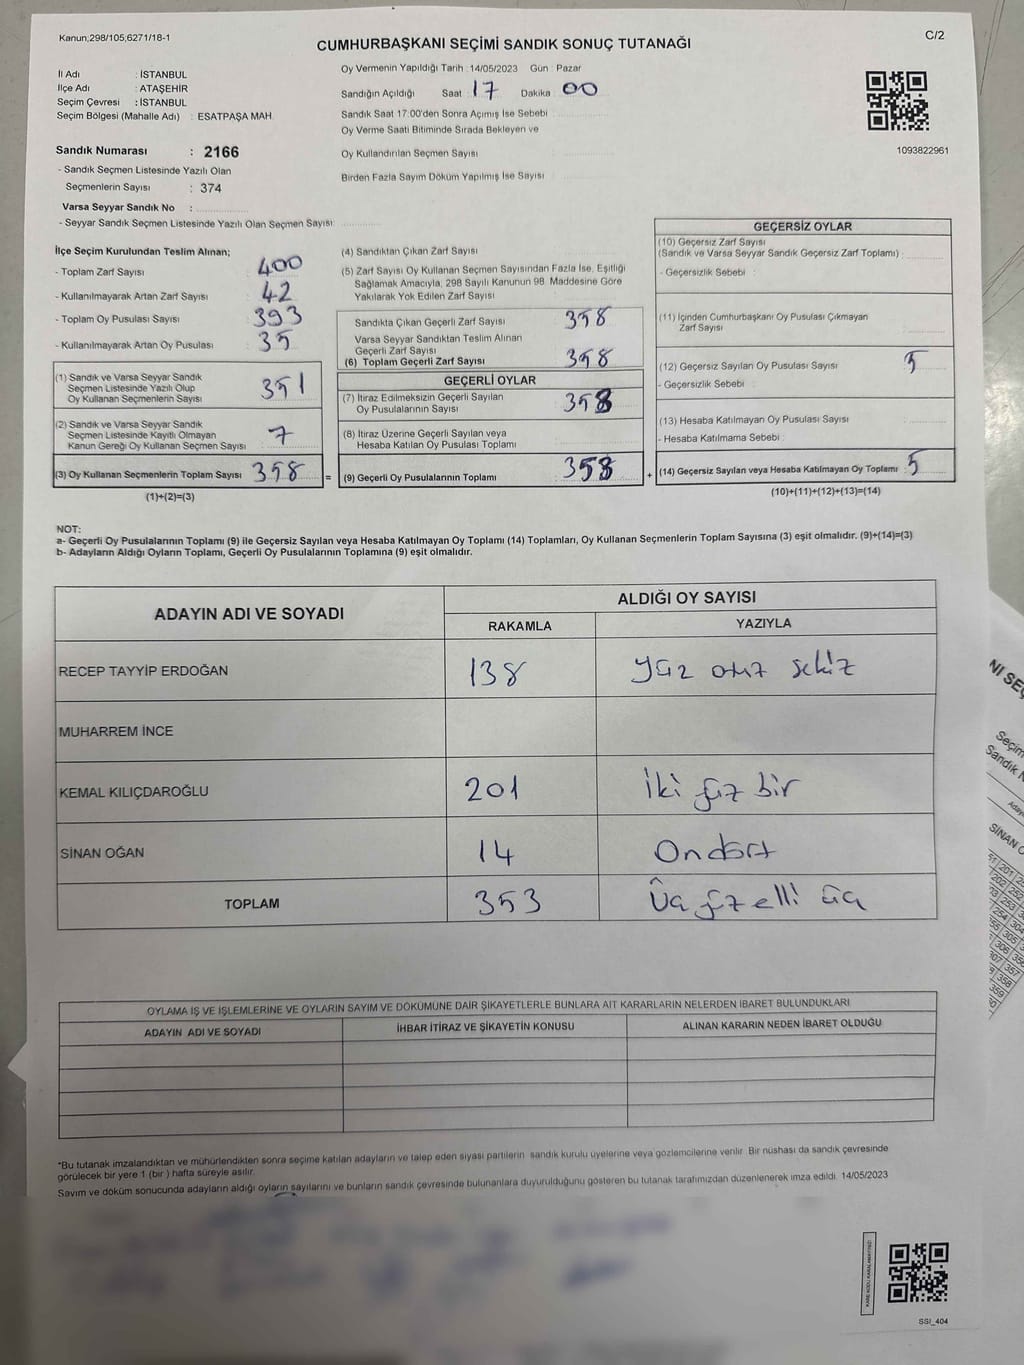 Kanun;298/105;6271/18-1
C/2
CUMHURBAŞKANI SEÇİMİ SANDIK SONUÇ TUTANAĞI
İl Adı : İSTANBUL
İlçe Adı : ATAŞEHİR
Seçim Çevresi : İSTANBUL
Seçim Bölgesi (Mahalle Adı) : ESATPAŞA MAH.
Oy Vermenin Yapıldığı Tarih :14/05/2023 Gün : Pazar
Sandığın Açıldığı Saat : 17 Dakika : 00
Sandık Saat 17:00'den Sonra Açımış İse Sebebi
Oy Verme Saati Bitiminde Sırada Bekleyen ve
Oy Kullandırılan Seçmen Sayısı
Birden Fazla Sayım Döküm Yapılmış İse Sayısı
1093822961
Sandık Numarası : 2166
- Sandık Seçmen Listesinde Yazılı Olan
Seçmenlerin Sayısı : 374
Varsa Seyyar Sandık No :
- Seyyar Sandık Seçmen Listesinde Yazılı Olan Seçmen Sayısı:
İlçe Seçim Kurulundan Teslim Alınan;
- Toplam Zarf Sayısı 400
- Kullanılmayarak Artan Zarf Sayısı 42
- Toplam Oy Pusulası Sayısı 393
- Kullanılmayarak Artan Oy Pusulası 35
(1) Sandık ve Varsa Seyyar Sandık
Seçmen Listesinde Yazılı Olup
Oy Kullanan Seçmenlerin Sayısı 351
(2) Sandık ve Varsa Seyyar Sandık
Seçmen Listesinde Kayıtlı Olmayan
Kanun Gereği Oy Kullanan Seçmen Sayısı 7
(3) Oy Kullanan Seçmenlerin Toplam Sayısı 358 =
(1)+(2)=(3)
(4) Sandıktan Çıkan Zarf Sayısı
(5) Zarf Sayısı Oy Kullanan Seçmen Sayısından Fazla İse, Eşitliği
Sağlamak Amacıyla, 298 Sayılı Kanunun 98. Maddesine Göre
Yakılarak Yok Edilen Zarf Sayısı
Sandıkta Çıkan Geçerli Zarf Sayısı 358
Varsa Seyyar Sandıktan Teslim Alınan
Geçerli Zarf Sayısı
(6) Toplam Geçerli Zarf Sayısı 358
GEÇERLİ OYLAR
(7) İtiraz Edilmeksizin Geçerli Sayılan
Oy Pusulalarının Sayısı 358
(8) İtiraz Üzerine Geçerli Sayılan veya
Hesaba Katılan Oy Pusulası Toplamı
(9) Geçerli Oy Pusulalarının Toplamı 358 +
GEÇERSİZ OYLAR
(10) Geçersiz Zarf Sayısı
(Sandık ve Varsa Seyyar Sandık Geçersiz Zarf Toplamı) :
- Geçersizlik Sebebi :
(11) İçinden Cumhurbaşkanı Oy Pusulası Çıkmayan
Zarf Sayısı
(12) Geçersiz Sayılan Oy Pusulası Sayısı 5
- Geçersizlik Sebebi :
(13) Hesaba Katılmayan Oy Pusulası Sayısı
- Hesaba Katılmama Sebebi :
(14) Geçersiz Sayılan veya Hesaba Katılmayan Oy Toplamı 5
(10)+(11)+(12)+(13)=(14)
NOT:
a- Geçerli Oy Pusulalarının Toplamı (9) ile Geçersiz Sayılan veya Hesaba Katılmayan Oy Toplamı (14) Toplamları, Oy Kullanan Seçmenlerin Toplam Sayısına (3) eşit olmalıdır. (9)+(14)=(3)
b- Adayların Aldığı Oyların Toplamı, Geçerli Oy Pusulalarının Toplamına (9) eşit olmalıdır.
ADAYIN ADI VE SOYADI
ALDIĞI OY SAYISI
RAKAMLA YAZIYLA
RECEP TAYYİP ERDOĞAN 138 Yüz otuz sekiz
MUHARREM İNCE
KEMAL KILIÇDAROĞLU 201 İki yüz bir
SİNAN OĞAN 14 Ondört
TOPLAM 353 Üç yüz elli üç
OYLAMA İŞ VE İŞLEMLERİNE VE OYLARIN SAYIM VE DÖKÜMÜNE DAİR ŞİKAYETLERLE BUNLARA AİT KARARLARIN NELERDEN İBARET BULUNDUKLARI
ADAYIN ADI VE SOYADI İHBAR İTİRAZ VE ŞİKAYETİN KONUSU ALINAN KARARIN NEDEN İBARET OLDUĞU
*Bu tutanak imzalandıktan ve mühürlendikten sonra seçime katılan adayların ve talep eden siyasi partilerin sandık kurulu üyelerine veya gözlemcilerine verilir. Bir nüshası da sandık çevresinde
görülecek bir yere 1 (bir ) hafta süreyle asılır.
Sayım ve döküm sonucunda adayların aldığı oyların sayılarını ve bunların sandık çevresinde bulunanlara duyurulduğunu gösteren bu tutanak tarafımızdan düzenlenerek imza edildi. 14/05/2023
SSI_404